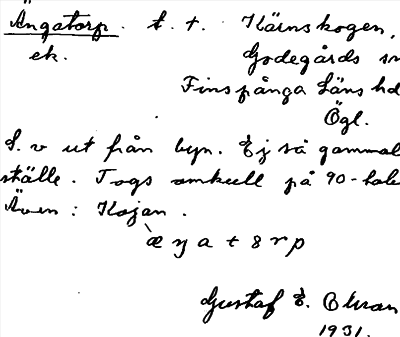 Ängatorp. t. t. Kärnskogen,
ek. Godegårds sn
Finspånga Läns hd
Ögl.
S. v ut från byn. Ej så gammal
ställe. Togs omkull på 90-tale
Även: Kojan.
Gustaf E.
1931.